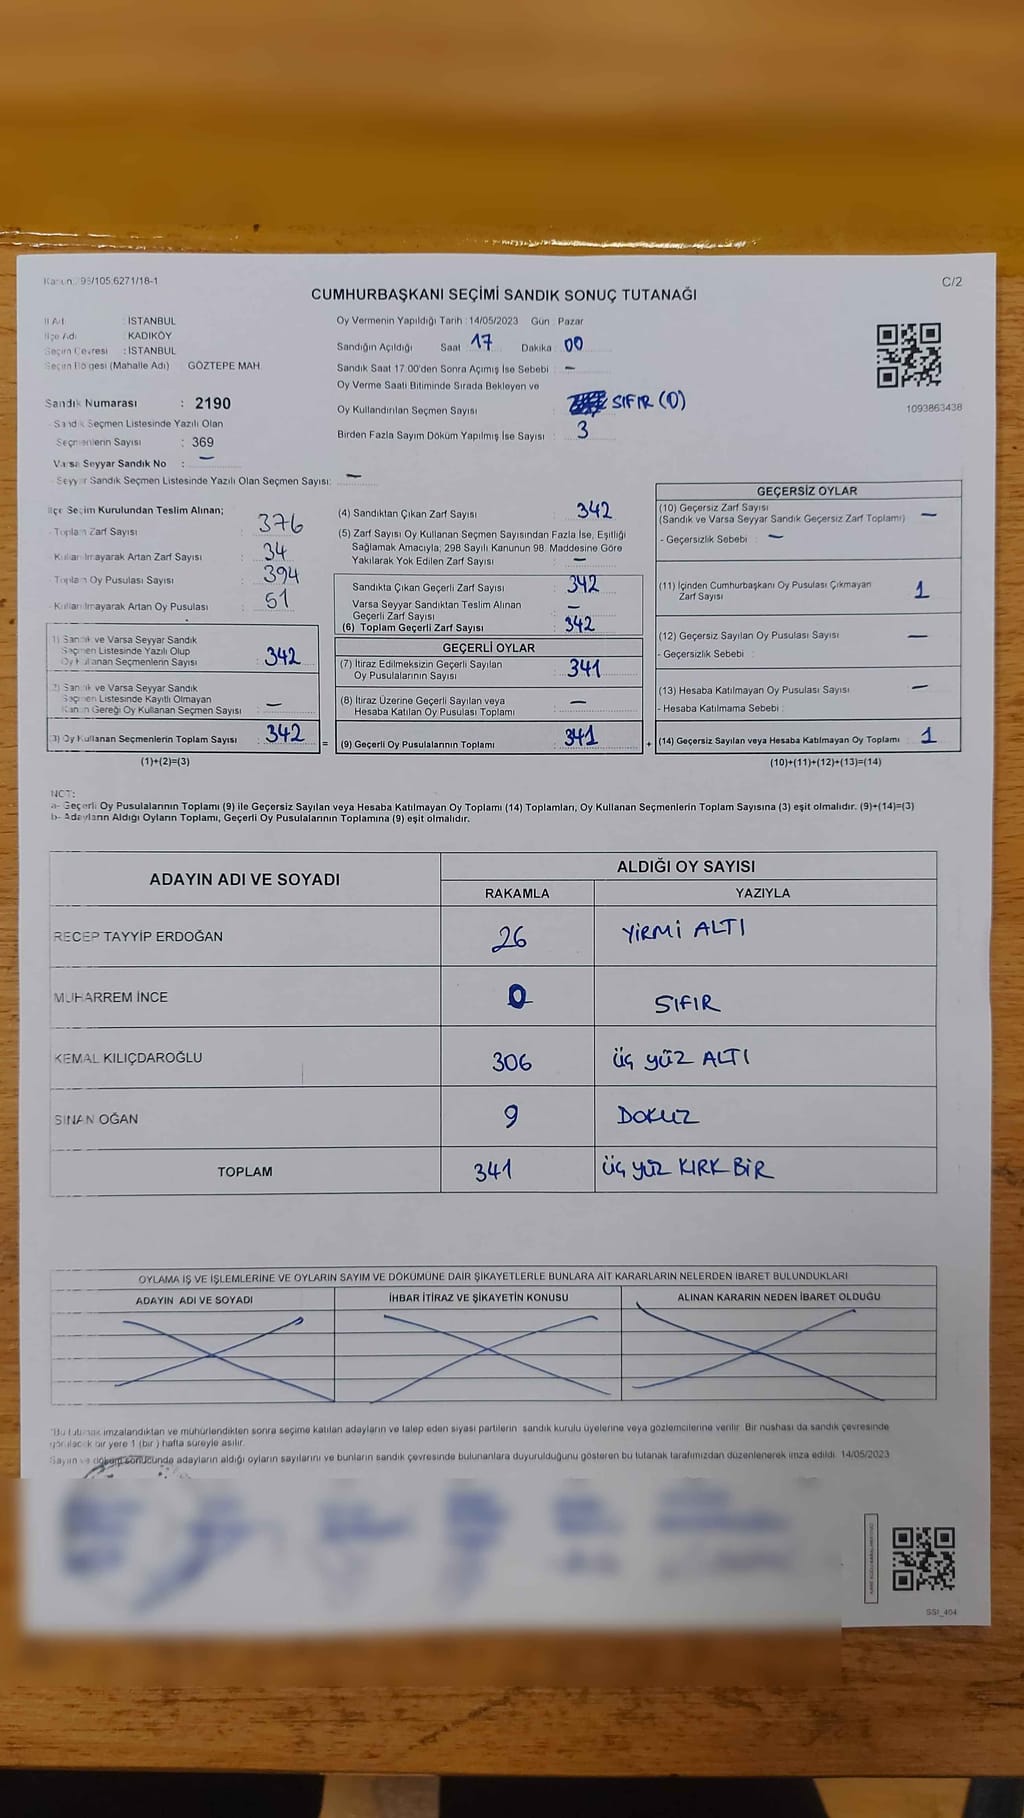 Kanun: 298/105,6271/18-1
C/2
CUMHURBAŞKANI SEÇİMİ SANDIK SONUÇ TUTANAĞI
İl Adı : İSTANBUL
İlçe Adı : KADIKÖY
Seçim Çevresi : İSTANBUL
Seçim Bölgesi (Mahalle Adı) : GÖZTEPE MAH.
Sandık Numarası : 2190
- Sandık Seçmen Listesinde Yazılı Olan
Seçmenlerin Sayısı : 369
Varsa Seyyar Sandık No : —
- Seyyar Sandık Seçmen Listesinde Yazılı Olan Seçmen Sayısı: —
Oy Vermenin Yapıldığı Tarih : 14/05/2023 Gün : Pazar
Sandığın Açıldığı Saat 17 Dakika 00
Sandık Saat 17:00'den Sonra Açımış İse Sebebi : —
Oy Verme Saati Bitiminde Sırada Bekleyen ve
Oy Kullandırılan Seçmen Sayısı : SIFIR (0)
Birden Fazla Sayım Döküm Yapılmış İse Sayısı : 3
1093863438
İlçe Seçim Kurulundan Teslim Alınan;
- Toplam Zarf Sayısı : 376
- Kullanılmayarak Artan Zarf Sayısı : 34
- Toplam Oy Pusulası Sayısı : 394
- Kullanılmayarak Artan Oy Pusulası : 51
(1) Sandık ve Varsa Seyyar Sandık
Seçmen Listesinde Yazılı Olup
Oy Kullanan Seçmenlerin Sayısı : 342
(2) Sandık ve Varsa Seyyar Sandık
Seçmen Listesinde Kayıtlı Olmayan
Kanun Gereği Oy Kullanan Seçmen Sayısı : —
(3) Oy Kullanan Seçmenlerin Toplam Sayısı : 342
(1)+(2)=(3)
(4) Sandıktan Çıkan Zarf Sayısı : 342
(5) Zarf Sayısı Oy Kullanan Seçmen Sayısından Fazla İse, Eşitliği
Sağlamak Amacıyla, 298 Sayılı Kanunun 98. Maddesine Göre
Yakılarak Yok Edilen Zarf Sayısı : —
Sandıkta Çıkan Geçerli Zarf Sayısı : 342
Varsa Seyyar Sandıktan Teslim Alınan
Geçerli Zarf Sayısı : —
(6) Toplam Geçerli Zarf Sayısı : 342
GEÇERLİ OYLAR
(7) İtiraz Edilmeksizin Geçerli Sayılan
Oy Pusulalarının Sayısı : 341
(8) İtiraz Üzerine Geçerli Sayılan veya
Hesaba Katılan Oy Pusulası Toplamı : —
= (9) Geçerli Oy Pusulalarının Toplamı : 341
GEÇERSİZ OYLAR
(10) Geçersiz Zarf Sayısı
(Sandık ve Varsa Seyyar Sandık Geçersiz Zarf Toplamı) : —
- Geçersizlik Sebebi : —
(11) İçinden Cumhurbaşkanı Oy Pusulası Çıkmayan
Zarf Sayısı : 1
(12) Geçersiz Sayılan Oy Pusulası Sayısı : —
- Geçersizlik Sebebi :
(13) Hesaba Katılmayan Oy Pusulası Sayısı : —
- Hesaba Katılmama Sebebi :
+ (14) Geçersiz Sayılan veya Hesaba Katılmayan Oy Toplamı : 1
(10)+(11)+(12)+(13)=(14)
NOT:
a- Geçerli Oy Pusulalarının Toplamı (9) ile Geçersiz Sayılan veya Hesaba Katılmayan Oy Toplamı (14) Toplamları, Oy Kullanan Seçmenlerin Toplam Sayısına (3) eşit olmalıdır. (9)+(14)=(3)
b- Adayların Aldığı Oyların Toplamı, Geçerli Oy Pusulalarının Toplamına (9) eşit olmalıdır.
ADAYIN ADI VE SOYADI
ALDIĞI OY SAYISI
RAKAMLA YAZIYLA
RECEP TAYYİP ERDOĞAN 26 YİRMİ ALTI
MUHARREM İNCE 0 SIFIR
KEMAL KILIÇDAROĞLU 306 ÜÇ YÜZ ALTI
SİNAN OĞAN 9 DOKUZ
TOPLAM 341 ÜÇ YÜZ KIRK BİR
OYLAMA İŞ VE İŞLEMLERİNE VE OYLARIN SAYIM VE DÖKÜMÜNE DAİR ŞİKAYETLERLE BUNLARA AİT KARARLARIN NELERDEN İBARET BULUNDUKLARI
ADAYIN ADI VE SOYADI İHBAR İTİRAZ VE ŞİKAYETİN KONUSU ALINAN KARARIN NEDEN İBARET OLDUĞU
*Bu tutanak imzalandıktan ve mühürlendikten sonra seçime katılan adayların ve talep eden siyasi partilerin sandık kurulu üyelerine veya gözlemcilerine verilir. Bir nüshası da sandık çevresinde
görülecek bir yere 1 (bir) hafta süreyle asılır.
Sayım ve döküm sonucunda adayların aldığı oyların sayılarını ve bunların sandık çevresinde bulunanlara duyurulduğunu gösteren bu tutanak tarafımızdan düzenlenerek imza edildi. 14/05/2023
SSI_404